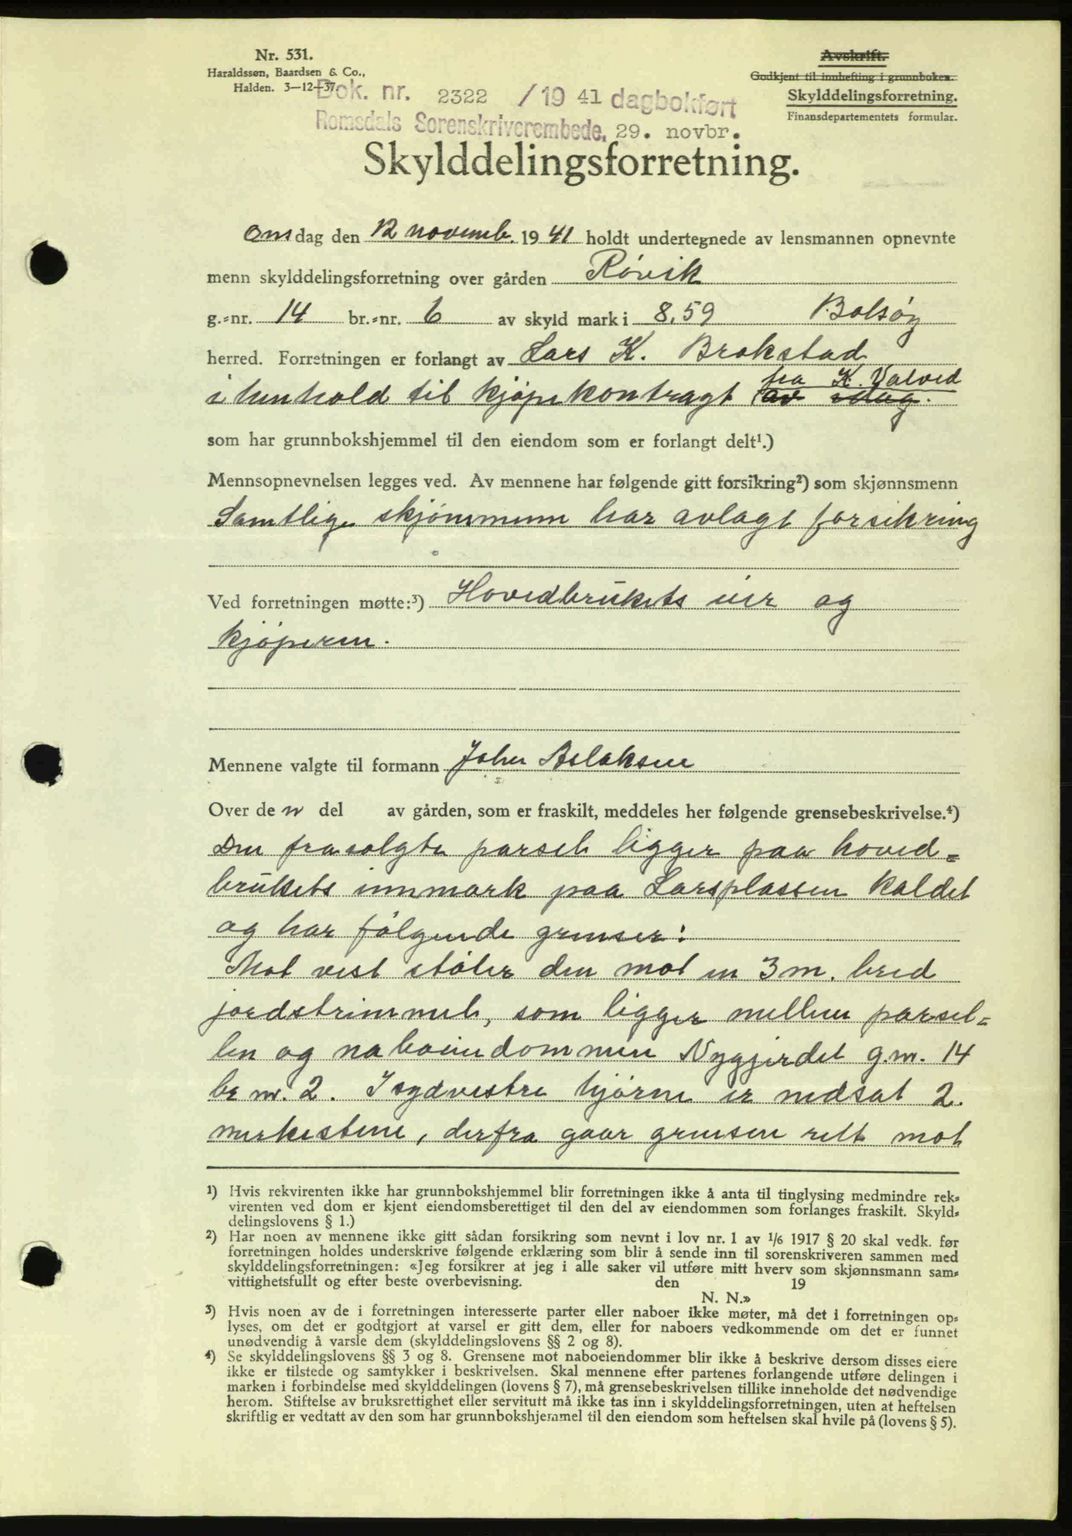 Nr. 531.
Haraldssøn, Baardsen & Co.,
Halden. 3—12—37.
Avskrift.
Godkjent til innhefting i grunnboken.
Skylddelingsforretning.
Finansdepartementets formular.
Dok. nr. 2322 /1941 dagbokført
Romsdals Sorenskriverembede, 29. novbr.
Skylddelingsforretning.
Onsdag den 12 novemb. 1941 holdt undertegnede av lensmannen opnevnte
menn skylddelingsforretning over gården Røvik
g.-nr. 14 br.-nr. 6 av skyld mark i 8,59 Bolsøy
herred. Forretningen er forlangt av Lars K. Brokstad
fra K. Valved
i henhold til kjøpekontragt av idag.
som har grunnbokshjemmel til den eiendom som er forlangt delt¹.)
Mennsopnevnelsen legges ved. Av mennene har følgende gitt forsikring²) som skjønnsmenn
Samtlige skjønnmenn har avlagt forsikring
Ved forretningen møtte:³) Hovedbrukets eier og
kjøperen.
Mennene valgte til formann John Aslaksen
Over den del av gården, som er fraskilt, meddeles her følgende grensebeskrivelse.⁴)
Den frasolgte parsel ligger paa hoved=
brukets innmark paa Larsplassen kaldet
og har følgende grenser:
Mot vest støter den mot en 3 m. bred
jordstrimmel, som ligger mellem parsel=
len og naboeiendommen Nygjerdet g.nr. 14
br nr. 2. I sydvestre hjørne er nedsat 2.
merkestene, derfra gaar grensen rett mot
¹) Hvis rekvirenten ikke har grunnbokshjemmel blir forretningen ikke å anta til tinglysing medmindre rek-
virenten ved dom er kjent eiendomsberettiget til den del av eiendommen som forlanges fraskilt. Skyld-
delingslovens § 1.)
²) Har noen av mennene ikke gitt sådan forsikring som nevnt i lov nr. 1 av ¹/6 1917 § 20 skal vedk. før
forretningen holdes underskrive følgende erklæring som blir å sende inn til sorenskriveren sammen med
skylddelingsforretningen: «Jeg forsikrer at jeg i alle saker vil utføre mitt hverv som skjønnsmann sam-
vittighetsfullt og efter beste overbevisning. den 19
N. N.»
³) Hvis noen av de i forretningen interesserte parter eller naboer ikke møter, må det i forretningen op-
lyses, om det er godtgjort at varsel er gitt dem, eller for naboers vedkommende om det er funnet
unødvendig å varsle dem (skylddelingslovens §§ 2 og 8).
⁴) Se skylddelingslovens §§ 3 og 8. Grensene mot naboeiendommer blir ikke å beskrive dersom disses eiere
ikke er tilstede og samtykker i beskrivelsen. Skal mennene efter partenes forlangende utføre delingen i
marken i forbindelse med skylddelingen (lovens § 7), må grensebeskrivelsen tillike inneholde det nødvendige
herom. Stiftelse av bruksrettighet eller servitutt må ikke tas inn i skylddelingsforretningen, uten at heftelsen
skriftlig er vedtatt av den som har grunnbokshjemmel til den eiendom som heftelsen skal hvile på (lovens § 5).